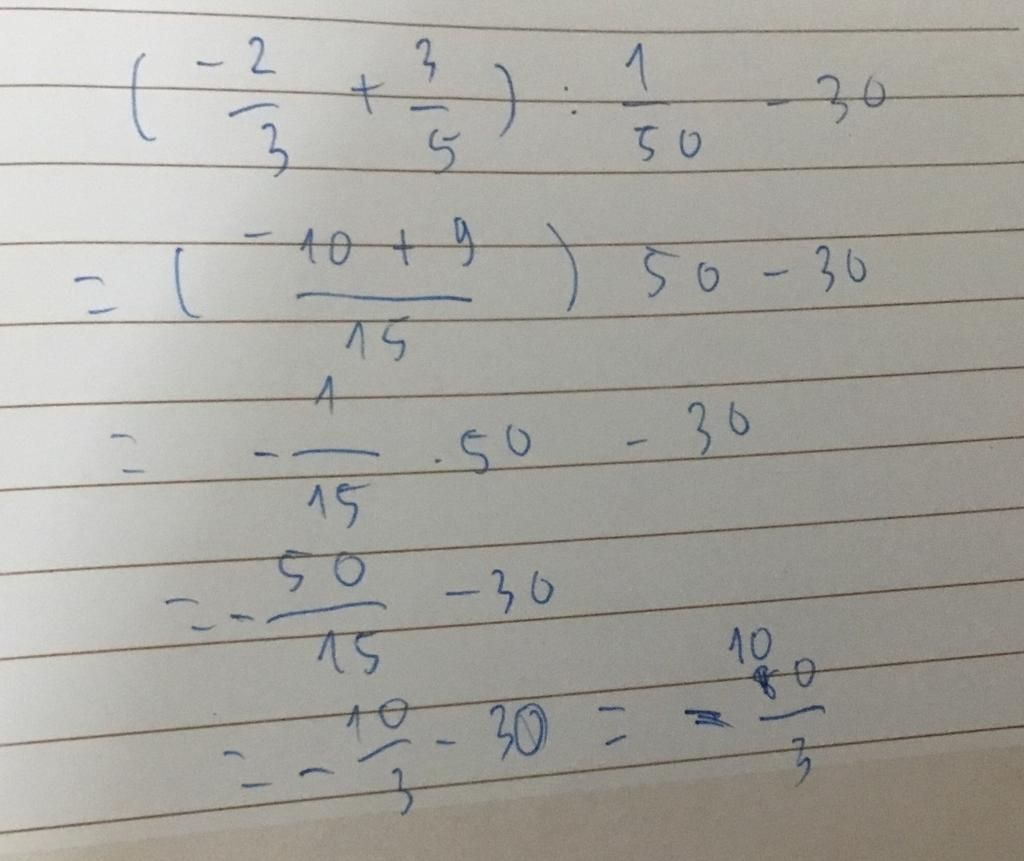 ( -2/3 + 3/5 ) : 1/50 - 30
= ( -10 + 9 / 15 ) 50 - 30
= - 1/15 . 50 - 30
= - 50/15 - 30
= - 10/3 - 30 = - 100/3